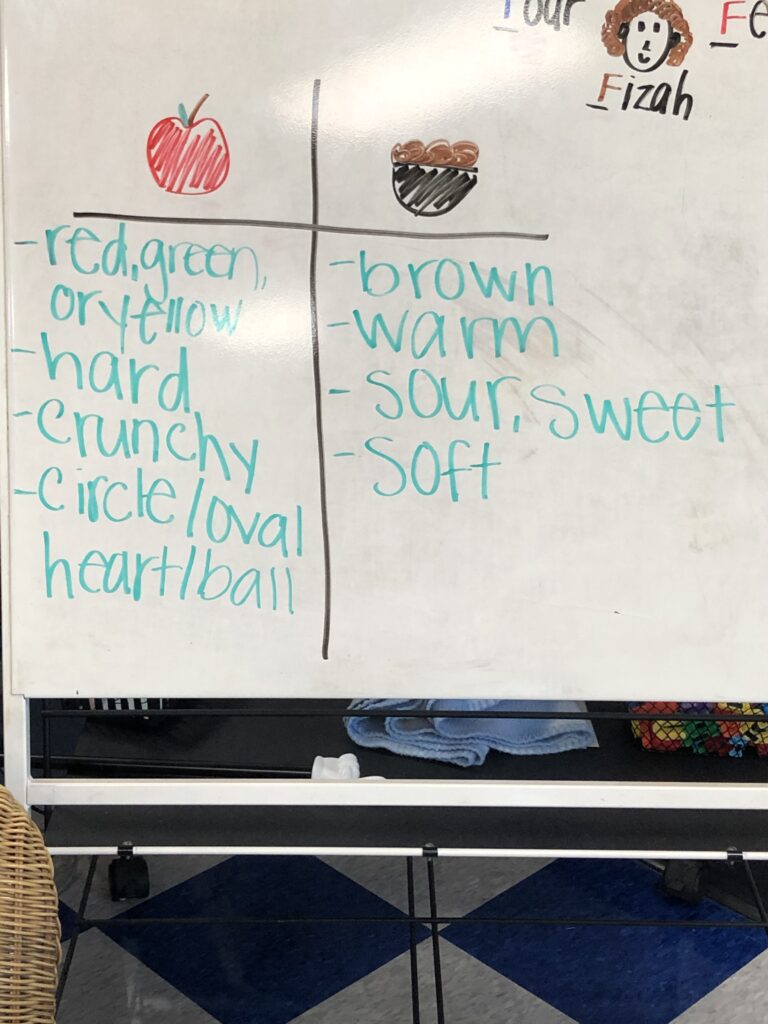 Your
Fizah
-red, green,
or yellow
-hard
-crunchy
-circle/oval
heart/ball
-brown
-warm
-sour, sweet
-soft